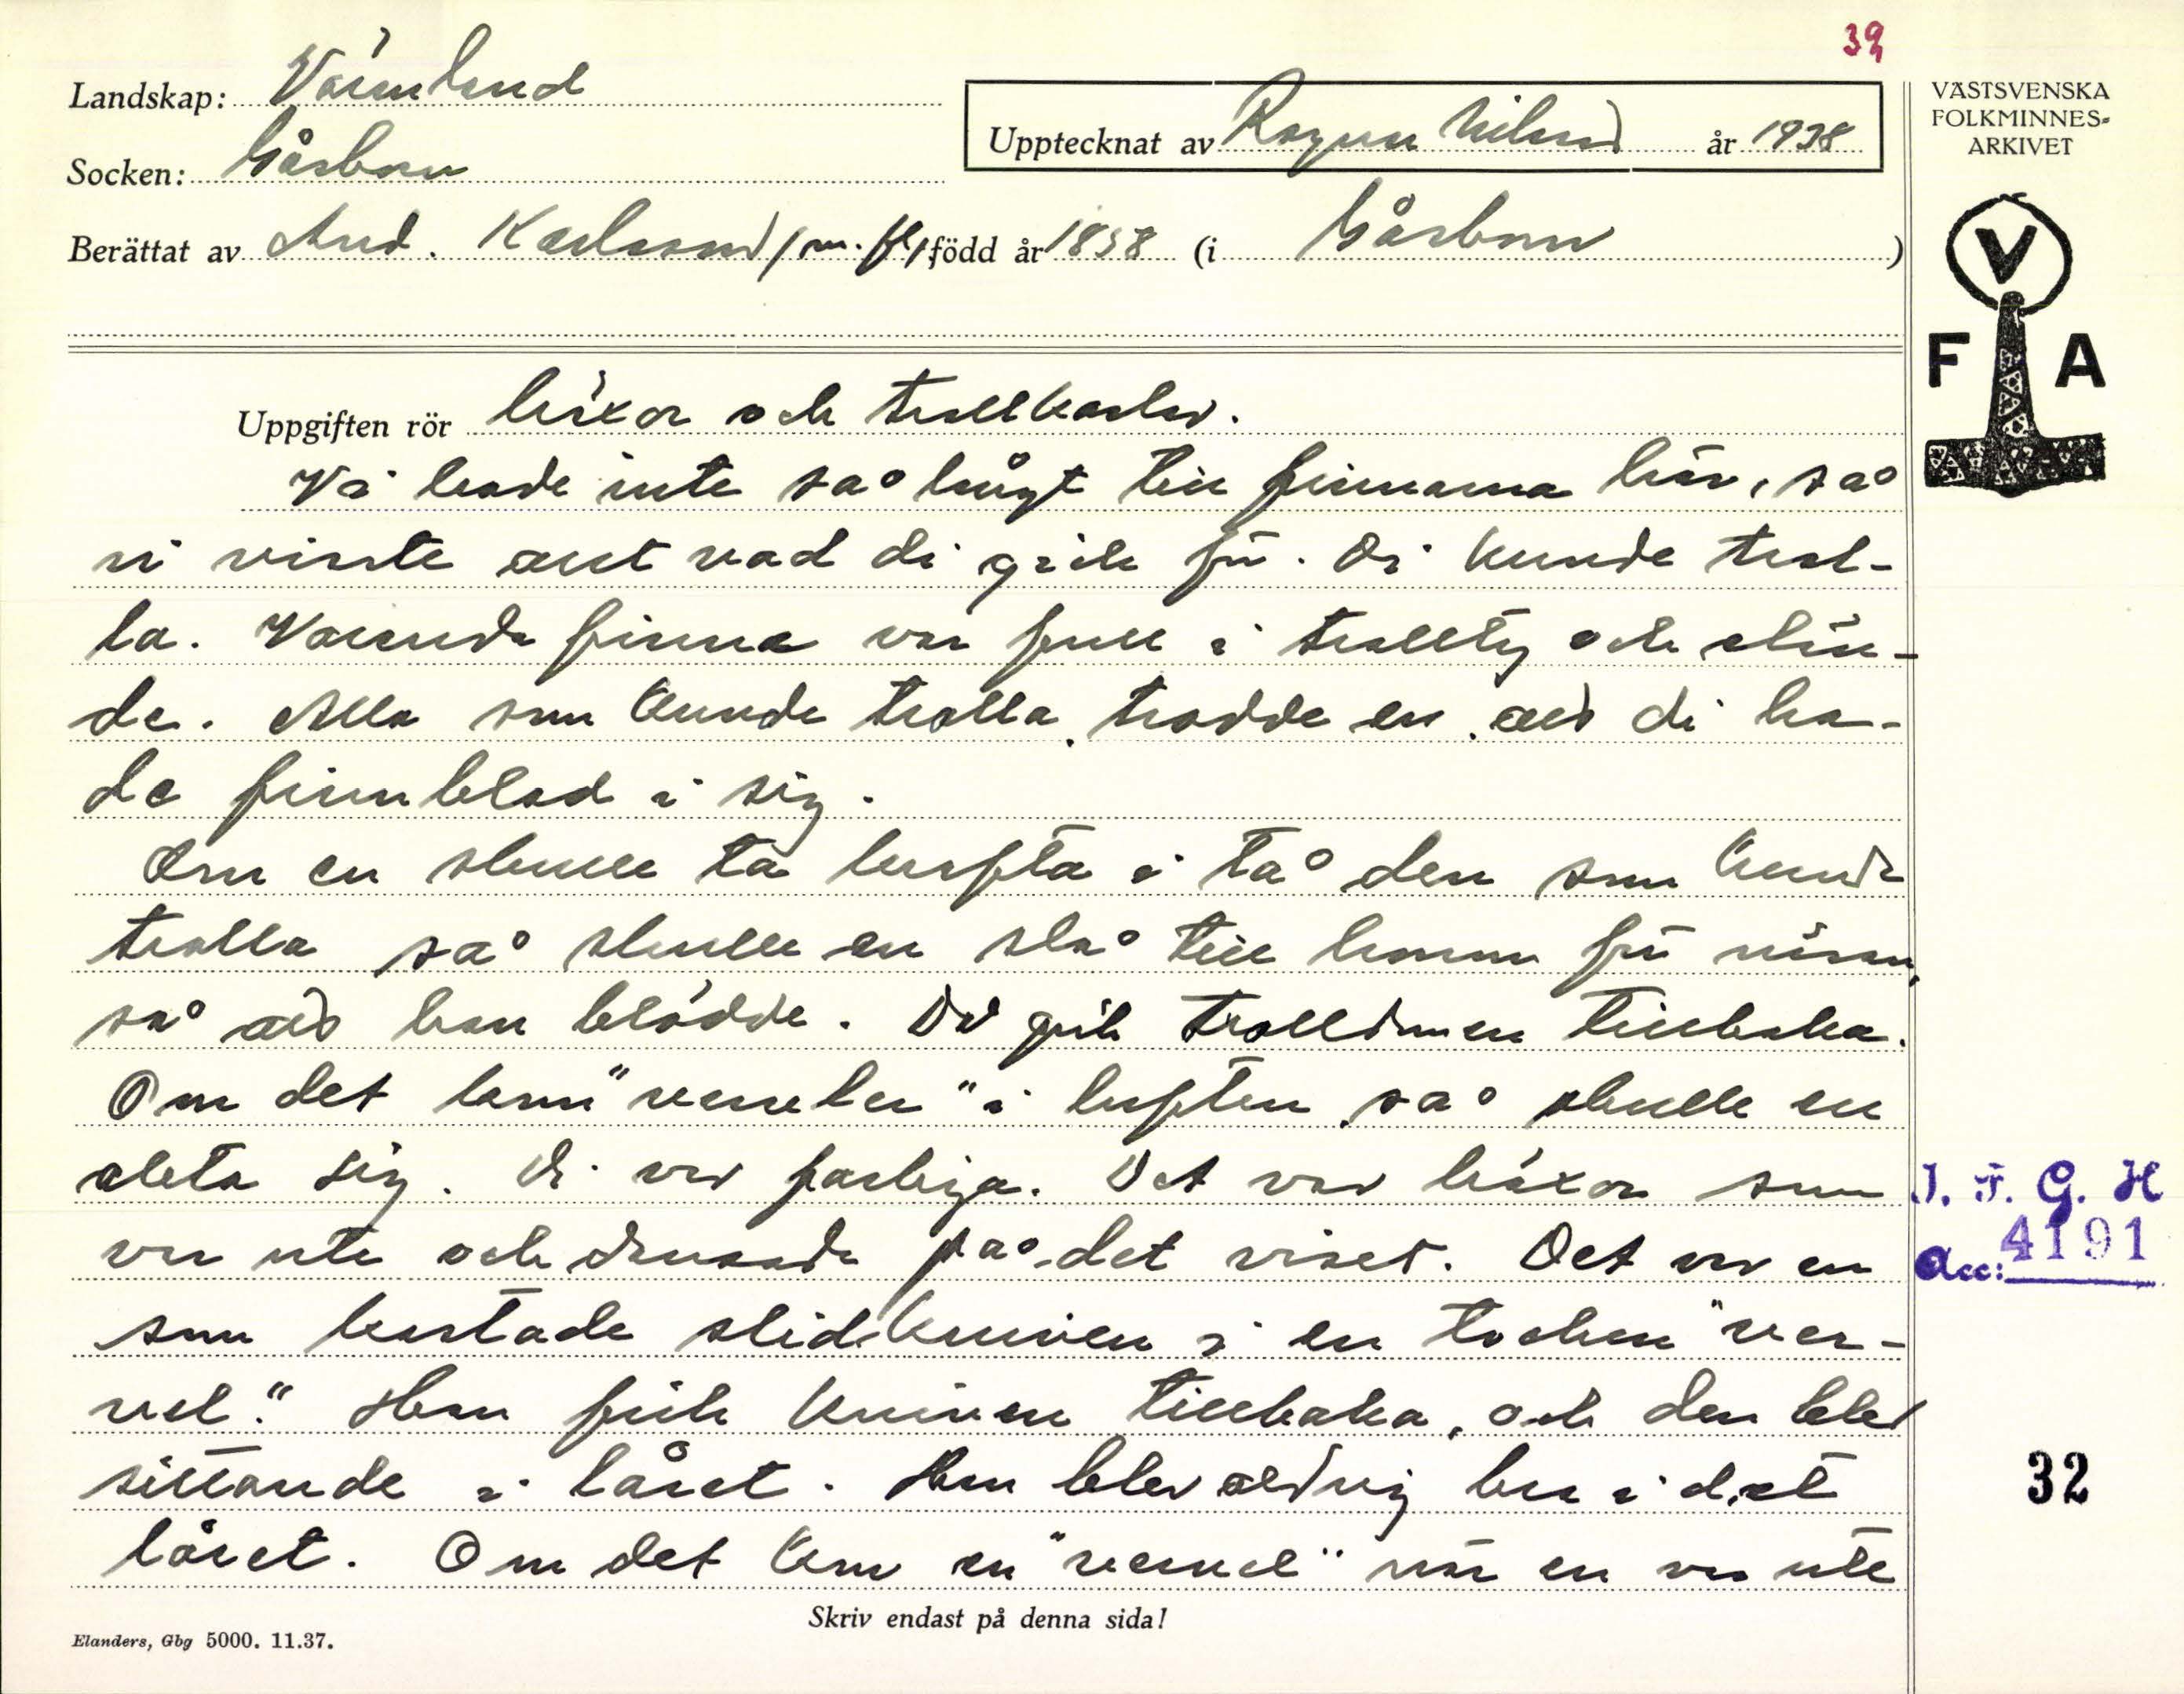 39
Landskap: Värmland
Upptecknat av Ragnar Nilsson år 1938
Socken: Gåsborn
Berättat av And. Karlsson (m. fl) född år 1858 (i Gåsborn)
VÄSTSVENSKA
FOLKMINNES-
ARKIVET
V
F A
Uppgiften rör häxor och trollkarlar.
Vi hade inte så långt till finnarna här, så
vi visste allt vad di gick för. Di kunde trol-
la. Varenda finna var full i trolltyg och elän-
de. Alla som kunde trolla, trodde en, att di ha-
de finnblod i sig.
Om en skulle ta lufta i tå den som kunde
trolla så skulle en slå till honom för näsan,
så att han blödde. Då gick trolldomen tillbaka.
Om det kom "vervlar" i luften, så skulle en
akta sig. Di var farliga. Det var häxor som
var ute och dansade på det viset. Det var en
som kastade slidkniven i en tocken "ver-
vel". Han fick kniven tillbaka, och den blev
sittande i låret. Han blev aldrig bra i det
låret. Om det kom en "vervel" när en var ute
I. F. G. H
Acc: 4191
32
Skriv endast på denna sida!
Elanders, Gbg 5000. 11.37.